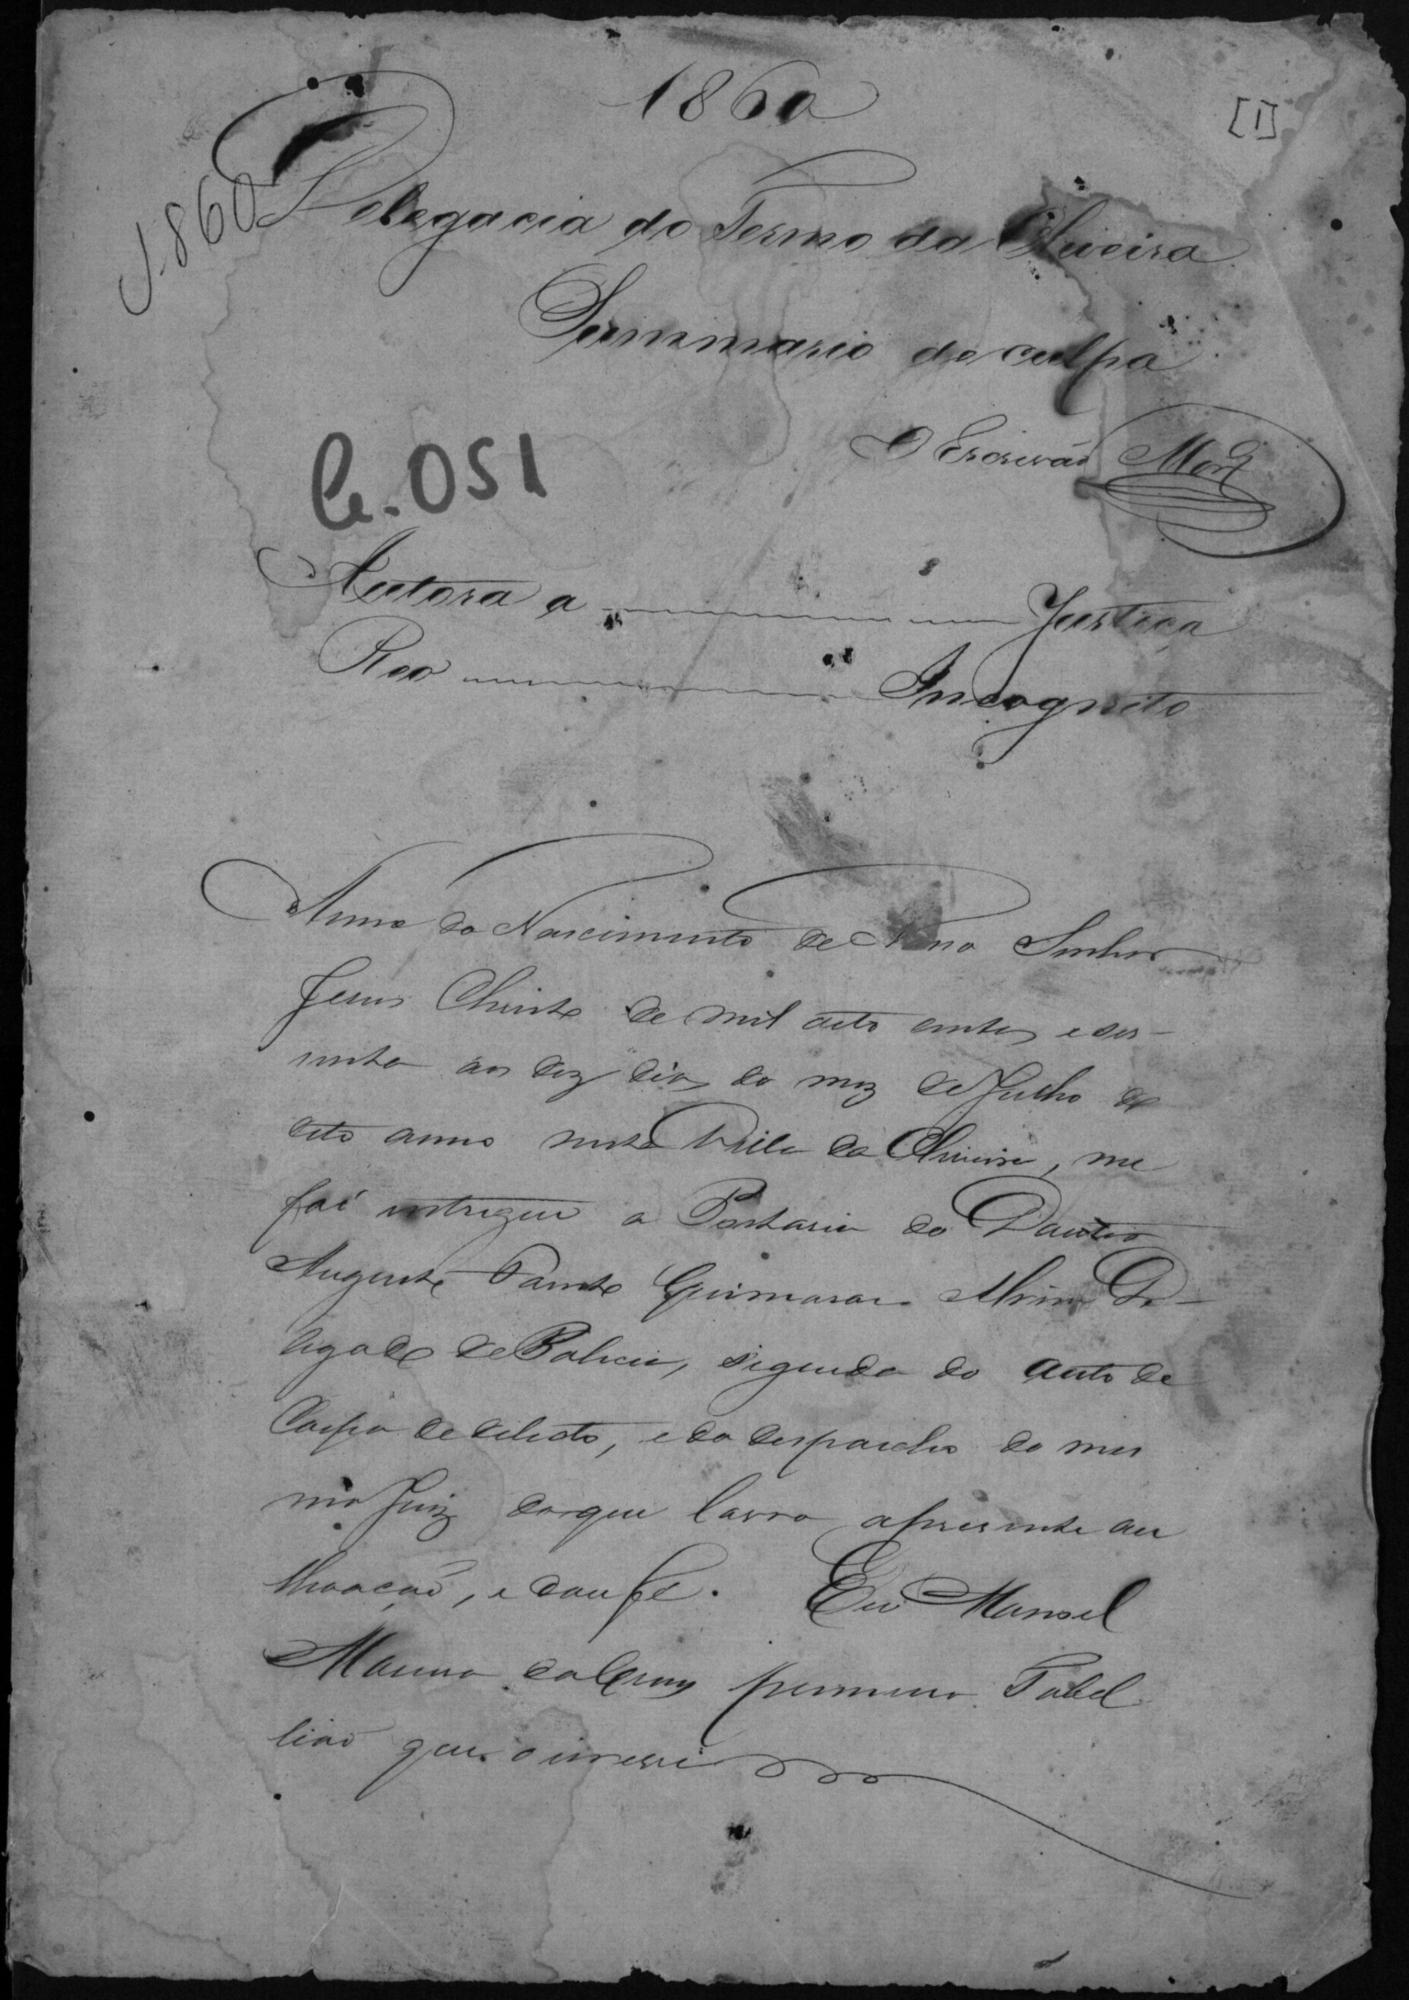 1860
[1]
1860
Delegacia do Termo da Oliveira
Summario de culpa
O Escrivão
Cr. 051
Autora a Justiça
Reo Incognito
Anno do Nascimento de Nosso Senhor
Jesus Christo de mil oito centos e ses-
senta aos dez dias do mez de Julho do
dito anno nesta Villa da Oliveira, me
foi entregue a Portaria do Doutor
Augusto Guimaraes Delegado
de Policia, seguida do auto de
Corpo de delicto, e do despacho do mes
mo Juiz do que lavro apresente au
thoação, e dou fé. Eu Manoel
da Cruz primeiro Tabel
lião que o escrevi